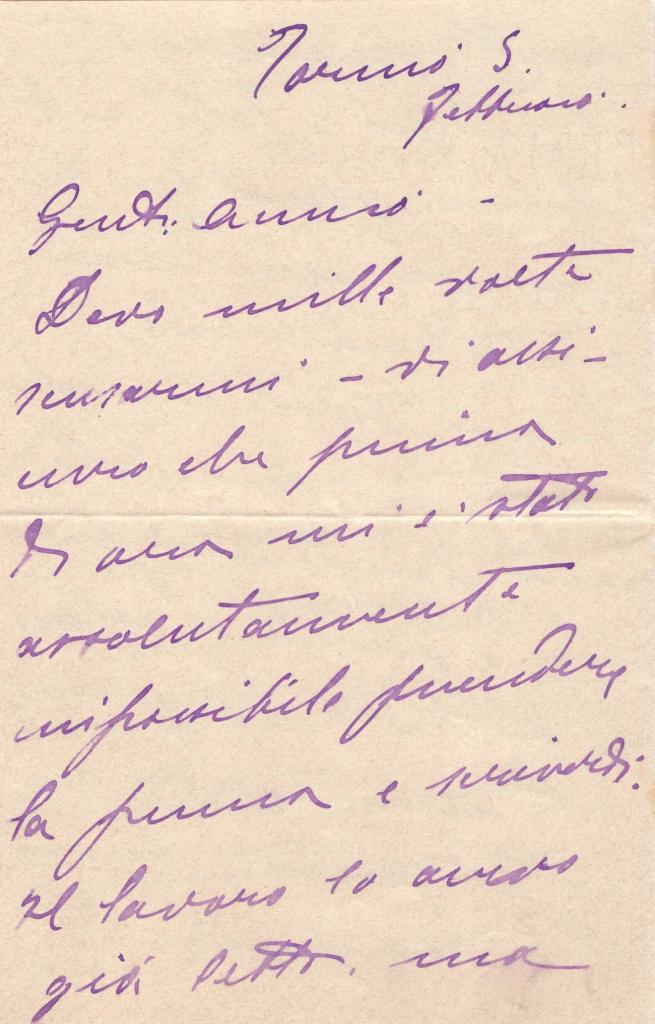 Torino 5.
Febbraio.
Gent. amico -
Devo mille volte
scusarmi - vi assi-
curo che prima
di ora mi è stato
assolutamente
impossibile prendere
la penna e scrivervi.
Il lavoro lo avevo
già letto. ma